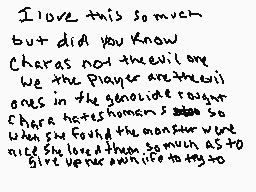 I love this so much
but did you know
Charas not the evil one
we the player are the evil
ones in the genocide rought
Chara hates humans so
when she found the monster were
nice she loved them so much as to
give up her own life to try to